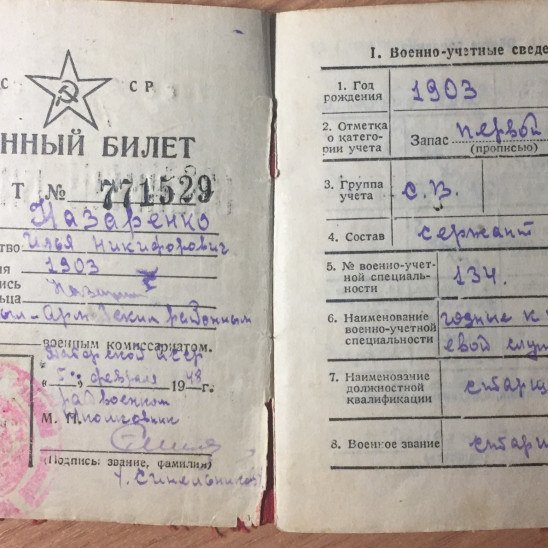 С С Р
ННЫЙ БИЛЕТ
Т № 771529
Назаренко
ство Илья Никифорович
ия 1903
пись
ьца
районным
военным комиссариатом.
„5“ февраля 1948 г.
М. П.
(Подпись: звание, фамилия)
I. Военно-учетные сведе
1. Год рождения 1903
2. Отметка о катего-
рии учета Запас первой
(прописью)
3. Группа учета С. В.
4. Состав сержант
5. № военно-учет-
ной специаль-
ности 134.
6. Наименование годные к
военно-учетной
специальности евой служ
7. Наименование
должностной старш
квалификации
8. Военное звание старш